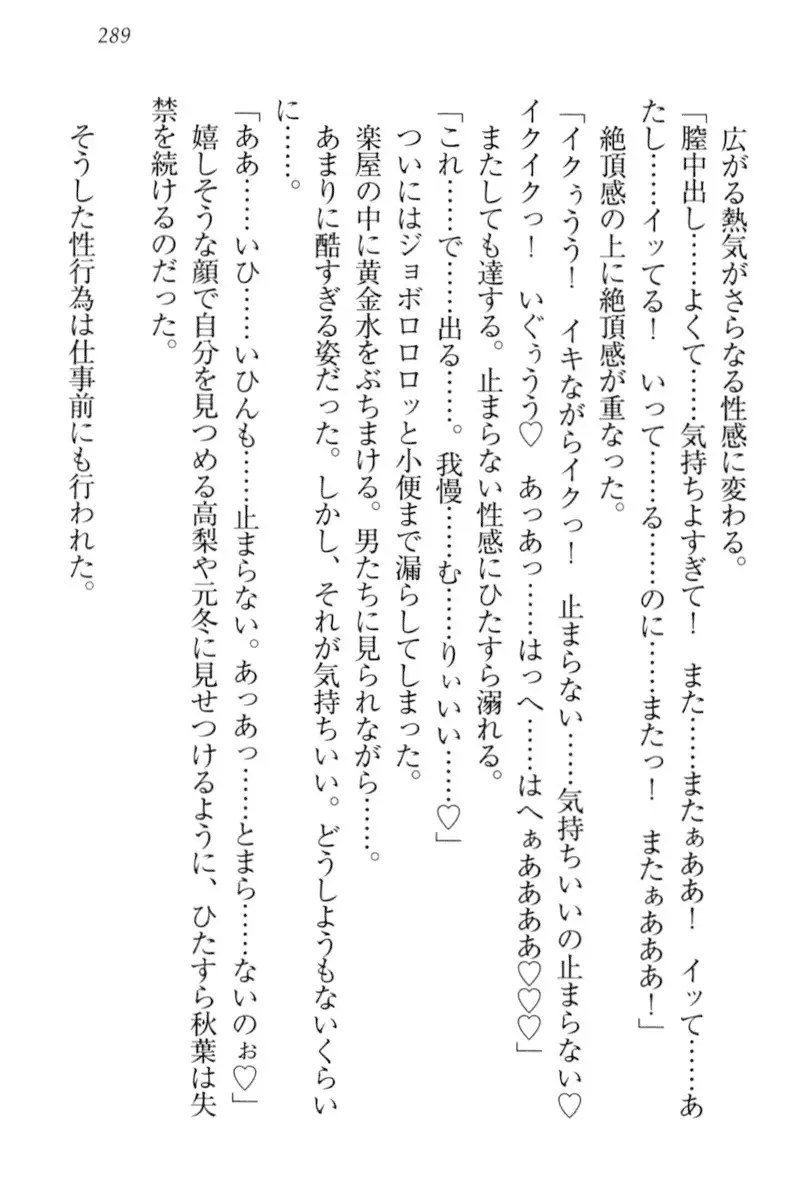 289
広がる熱気がさらなる性感に変わる。
「膣中出し……よくて……気持ちよすぎて！　また……またぁああ！　イッて……あ
たし……イッてる！　いって……る……のに……またっ！　またぁあああ！」
絶頂感の上に絶頂感が重なった。
「イクぅうう！　イキながらイクっ！　止まらない……気持ちいいの止まらない♡
イクイクっ！　いぐぅうう♡　あっあっ……はっへ……はへぁああああ♡♡♡」
またしても達する。止まらない性感にひたすら溺れる。
「これ……で……出る……。我慢……む……りぃいい……♡」
ついにはジョボロロロッと小便まで漏らしてしまった。
楽屋の中に黄金水をぶちまける。男たちに見られながら……。
あまりに酷すぎる姿だった。しかし、それが気持ちいい。どうしようもないくらい
に……。
「ああ……いひ……いひんも……止まらない。あっあっ……とまら……ないのぉ♡」
嬉しそうな顔で自分を見つめる高梨や元冬に見せつけるように、ひたすら秋葉は失
禁を続けるのだった。
そうした性行為は仕事前にも行われた。